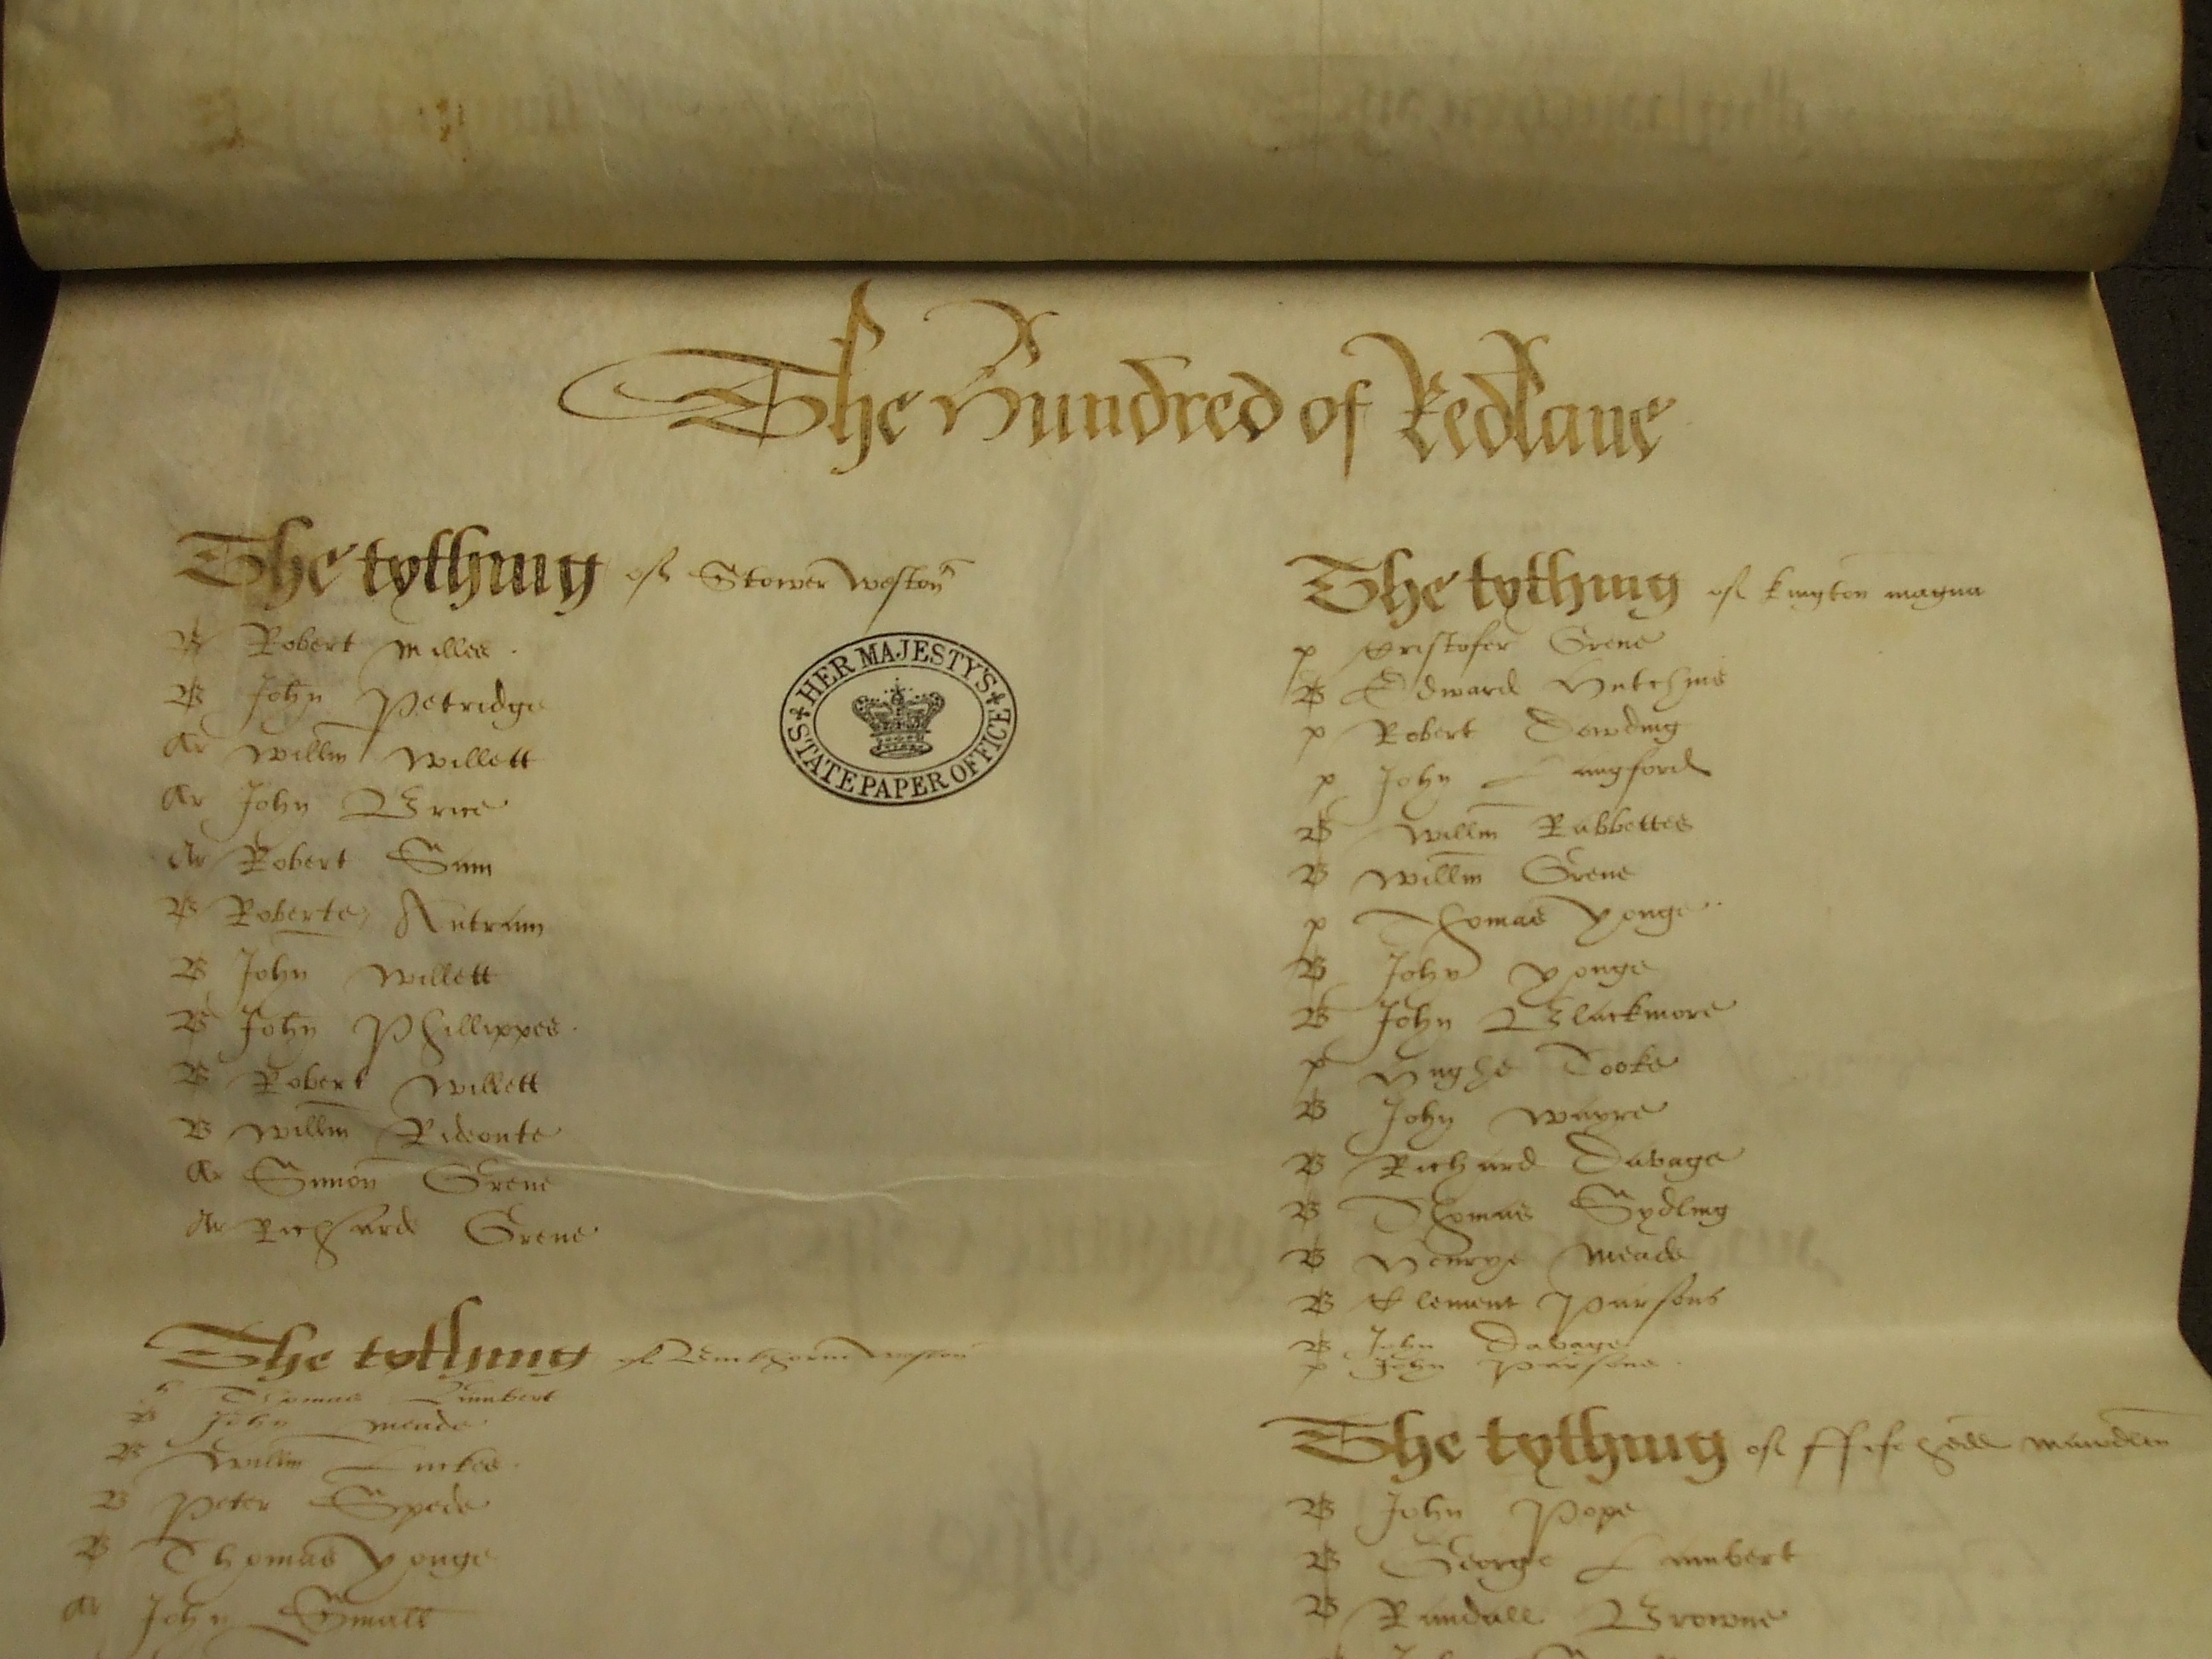 The Hundred of Redlane
The tything of Stower weston
B Robert Milles
B John Petridge
Ar Willm Willett
Ar John Brice
Ar Robert Sum
B Roberte Antram
B John Willett
B John Phillippes
B Robert Willett
B Willm Rideoute
Ar Simon Grene
Ar Richarde Grene
The tything of weston
Thomas Lambert
B John Meade
B Willm
B Peter Spede
B Thomas Yonge
Ar John Small
HER MAJESTY'S
STATE PAPER OFFICE
The tything of kington magna
p Xpristofer Grene
B Edward Hutchins
p Robert Dowding
p John Langford
B Willm Rabbettes
B Willm Grene
p Thomas Yonge
B John Yonge
B John Blackmore
p Hughe Tooke
B John Wayre
B Richard Davage
B Thomas Sydling
B Henrye Meade
B Clement Parsons
B John Davage
p John Parsons
The tything of ffifehedd mawdlen
B John Pope
B George Lambert
B Randall Browne